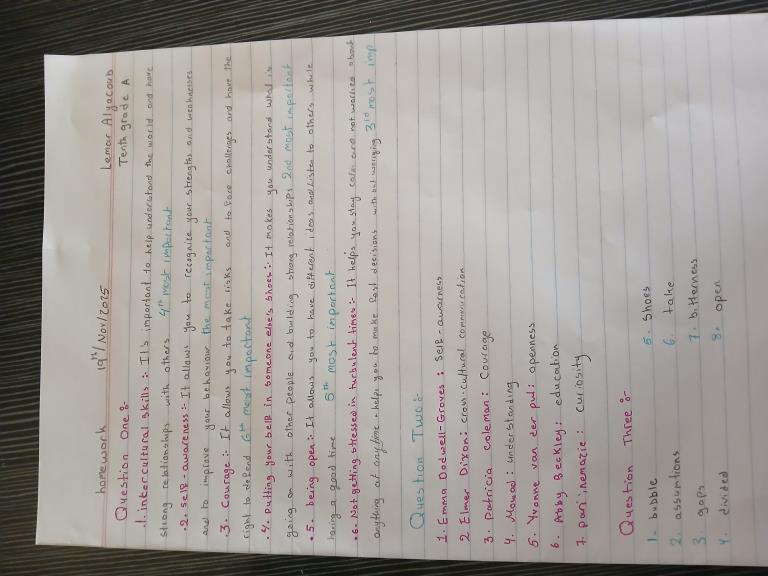 homework 19th/Nov/2025 Lemar Alyacoub
Question One :- Tenth grade A
.1. intercultural skills :- It's important to help understand the world and have
strong relationships with others 4th most important
.2. Self-awareness :- It allows you to recognize your strengths and weaknesses
and to improve your behaviour the most important
.3. Courage :- It allows you to take risks and to face challenges and have the
right to defend 6th most important
.4. putting your self in someone else's shoes :- It makes you understand what is
going on with other people and building strong relationships 2nd most important
.5. being open :- It allows you to have different ideas and listen to others while
having a good time 5th most important
.6. Not getting stressed in turbulent times :- It helps you stay calm and not worried about
anything at any time. helps you to make fast decisions with out worrying 3rd most imp
Question Two :-
1. Emma Dodwell-Groves : self-awarness
2 Elmer Dixon : cross-cultural communication
3. patricia coleman : Courage
4. Mouad : understanding
5. Yvonne van der pul : openness
6. Abby Beckley : education
7. : curiosity
Question Three :-
1. bubble 5. Shoes
2. assumtions 6. take
3. gaps 7. bitterness
4. divided 8. open